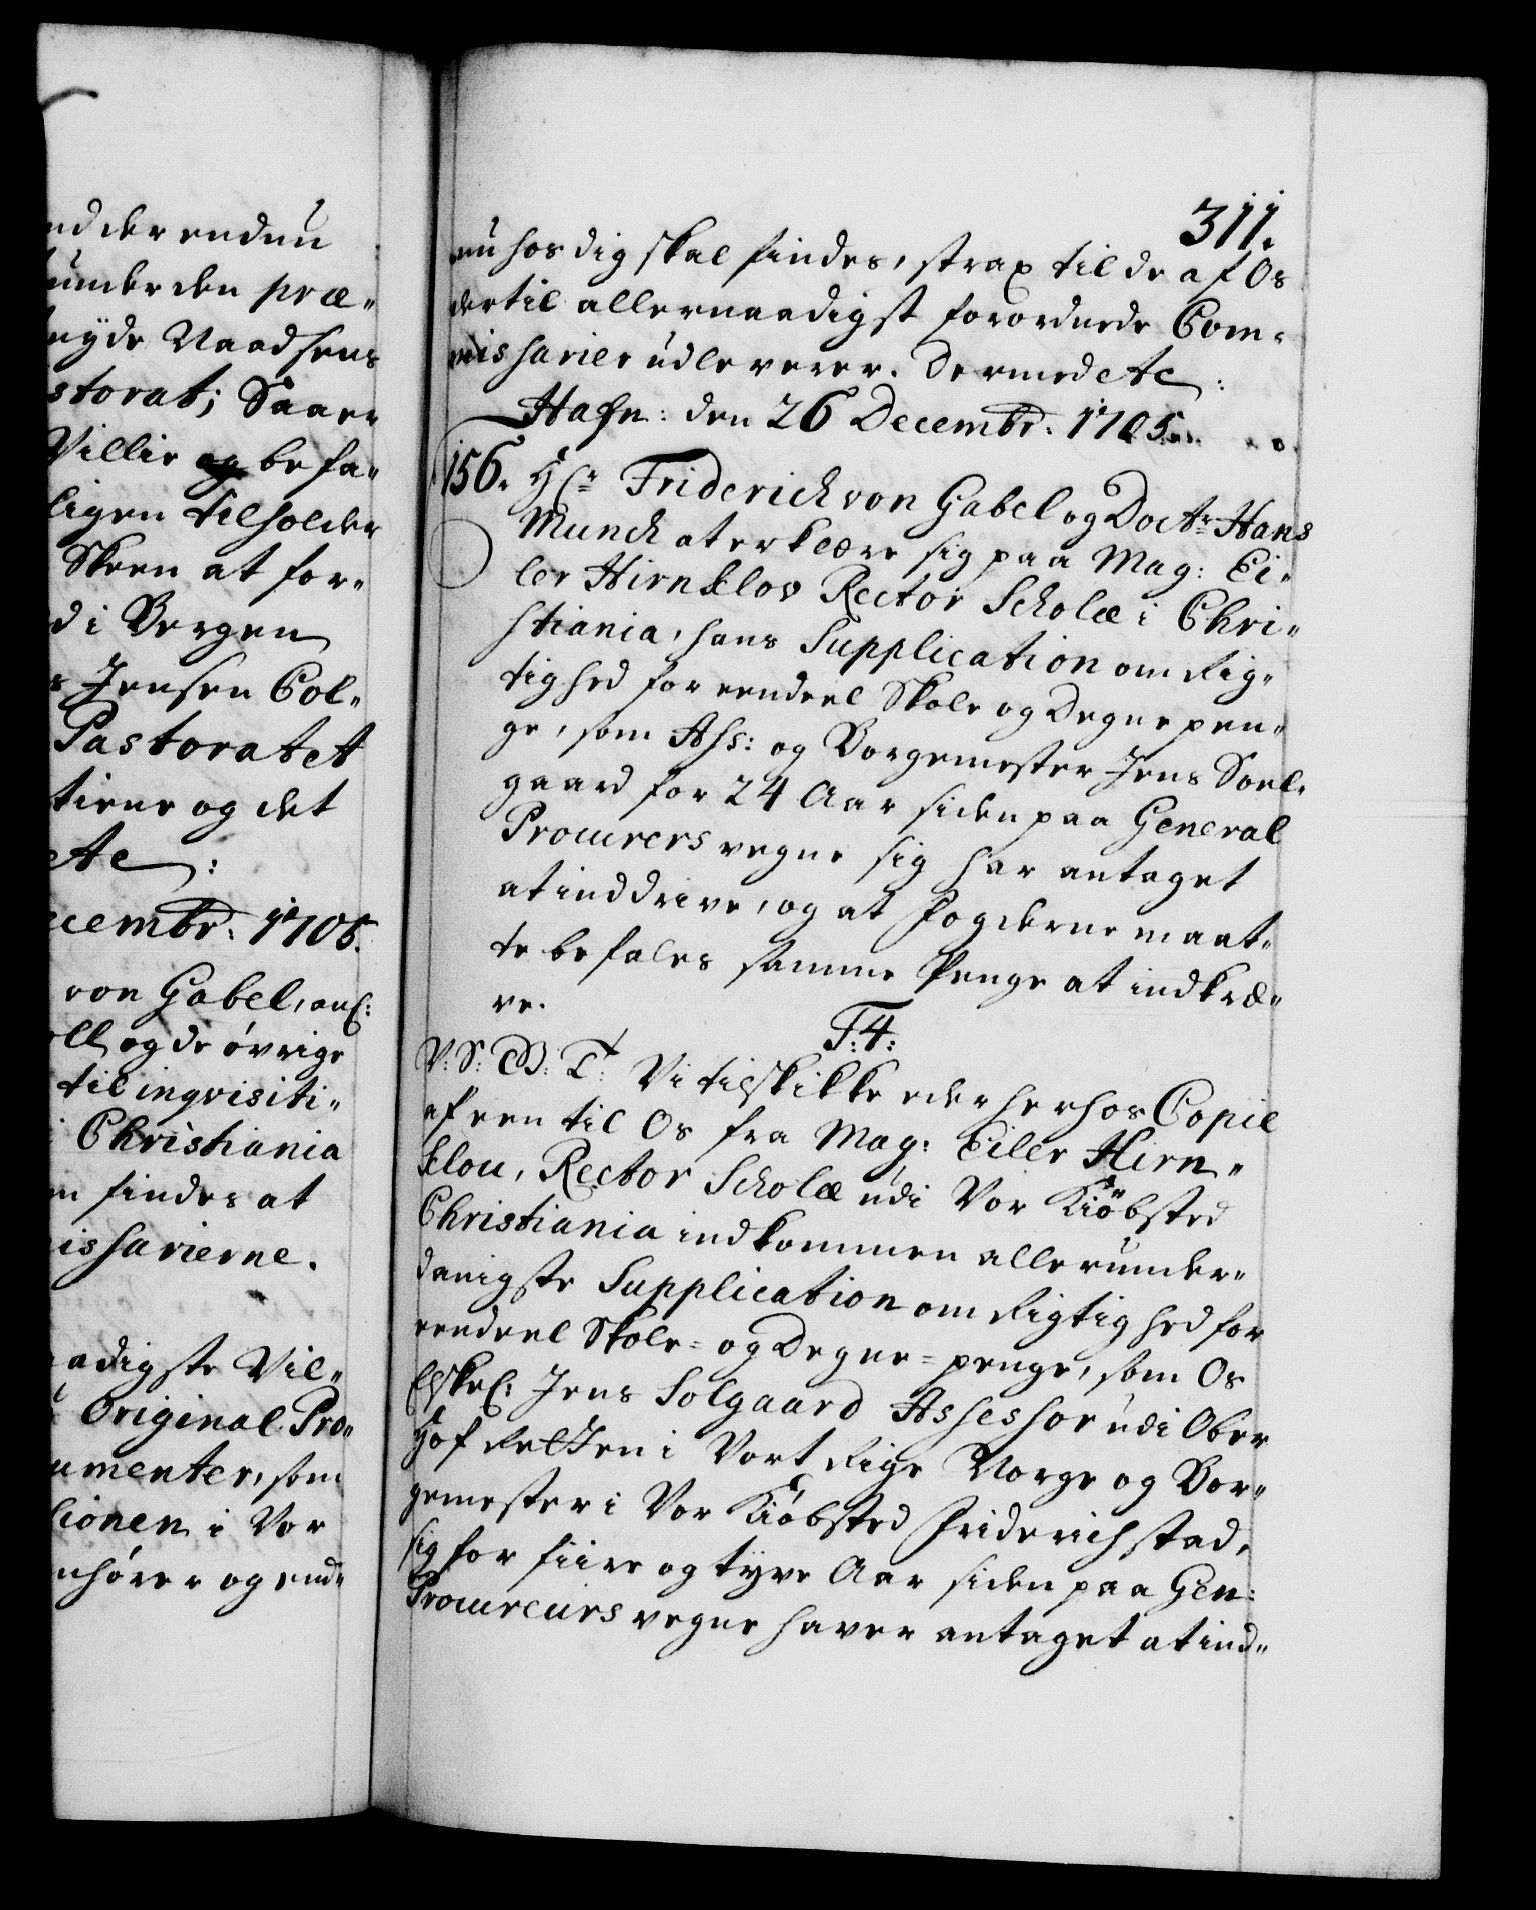 nd der endnu
under den præ„
nyde Naadsens
storat; Saa er
Villie og befa„
ligen tilholder
Skeen at for„
d i Bergen
s Jensen Col„
Pastoratet
tiene og det
etc:
ecembr: 1705.
von Gabel, anl:
oll og de øvrige
til inqvisiti„
i Christiania
m findes at
issarierne.
aadigste Vil„
Original Pro„
umenter, som
tionen i Vor
nhører og end„
311.
nu hos dig skal findes, strax til de af Os
dertil allernaadigst forordnede Com„
missarier udleverer. Dermed etc:
Hafn: den 26 Decembr: 1705.
156. Hr Friderich von Gabel og Doctr Hans
Munch at erklære sig paa Mag: Ei„
ler Hirnklov Rector Scholæ i Chri„
stiania, hans Supplication om Rig„
tighed for eendeel Skole og Degne pen„
ge, som Ass: og Borgemester Jens Soel„
gaard for 24 Aar siden paa General
Procurers vegne sig har antaget
at inddrive, og at Fogderne maat„
te befales samme Penge at indkræ„
ve.
T: 4:
V: S: G: T: Vi tilskikke eder herhos Copie
af een til Os fra Mag: Eiler Hirn„
klou, Rector Scholæ udi Vor Kiöbsted
Christiania indkommen allerunder„
danigste Supplication om Rigtighed for
eendeel Skole= og Degne=penge, som Os
Elskel: Jens Solgaard Assessor udi Ober
Hof Retten i Vort Rige Norge og Bor„
gemester i Vor Kiöbsted Friderichstad,
sig for fiire og tyve Aar siden paa Gen:
Procureurs vegne haver antaget at ind„